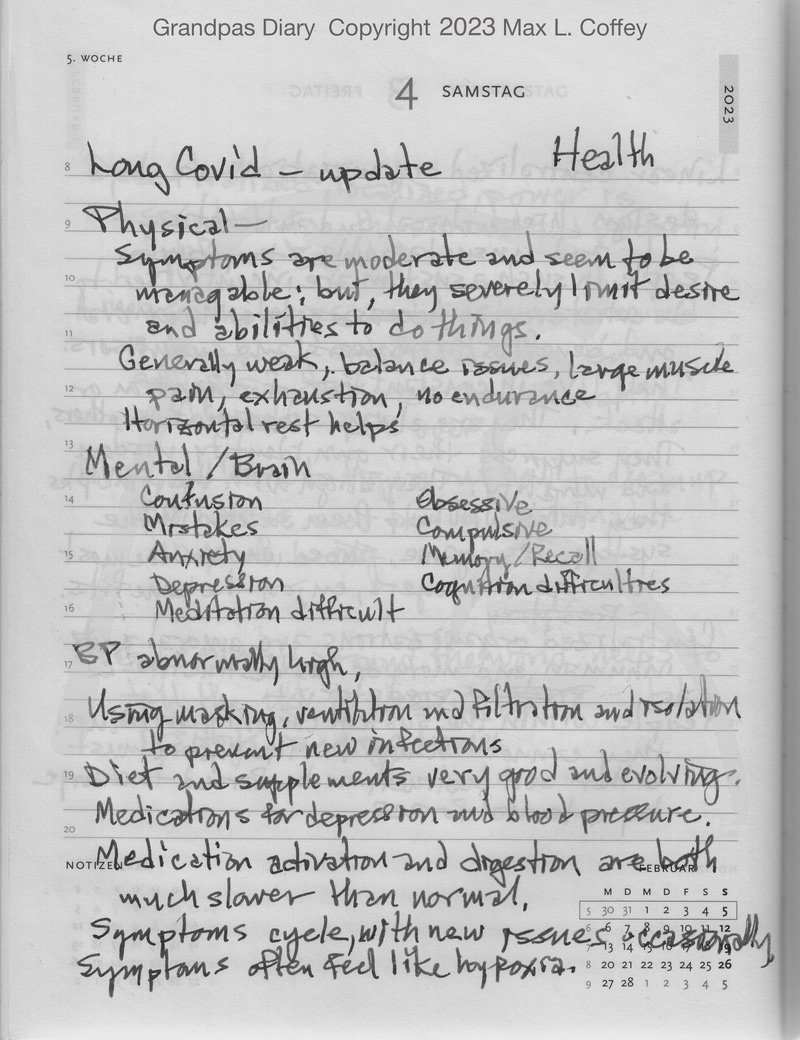 Grandpas Diary Copyright 2023 Max L. Coffey
5. WOCHE
4 SAMSTAG
2023
8 Long Covid – update Health
9 Physical —
Symptoms are moderate and seem to be
10 managable; but, they severely limit desire
and abilities to do things.
11 Generally weak, balance issues, large muscle
12 pain, exhaustion, no endurance
Horizontal rest helps
13 Mental / Brain
14 Confusion Obsessive
Mistakes Compulsive
15 Anxiety Memory/Recall
Depression Cognition difficulties
16 Meditation difficult
17 BP abnormally high,
18 Using masking, ventilation and filtration and isolation
to prevent new infections
19 Diet and supplements very good and evolving.
Medications for depression and blood pressure.
20
NOTIZEN Medication activation and digestion are both
FEBRUAR
much slower than normal.
M D M D F S S
5 30 31 1 2 3 4 5
Symptoms cycle, with new issues occasionally
6 6 7 8 9 10 11 12
13 14 15 16 17 18 19
Symptoms often feel like hypoxia.
8 20 21 22 23 24 25 26
9 27 28 1 2 3 4 5